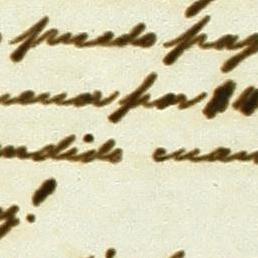 puedo pag
menor por
ndido cuan
y!